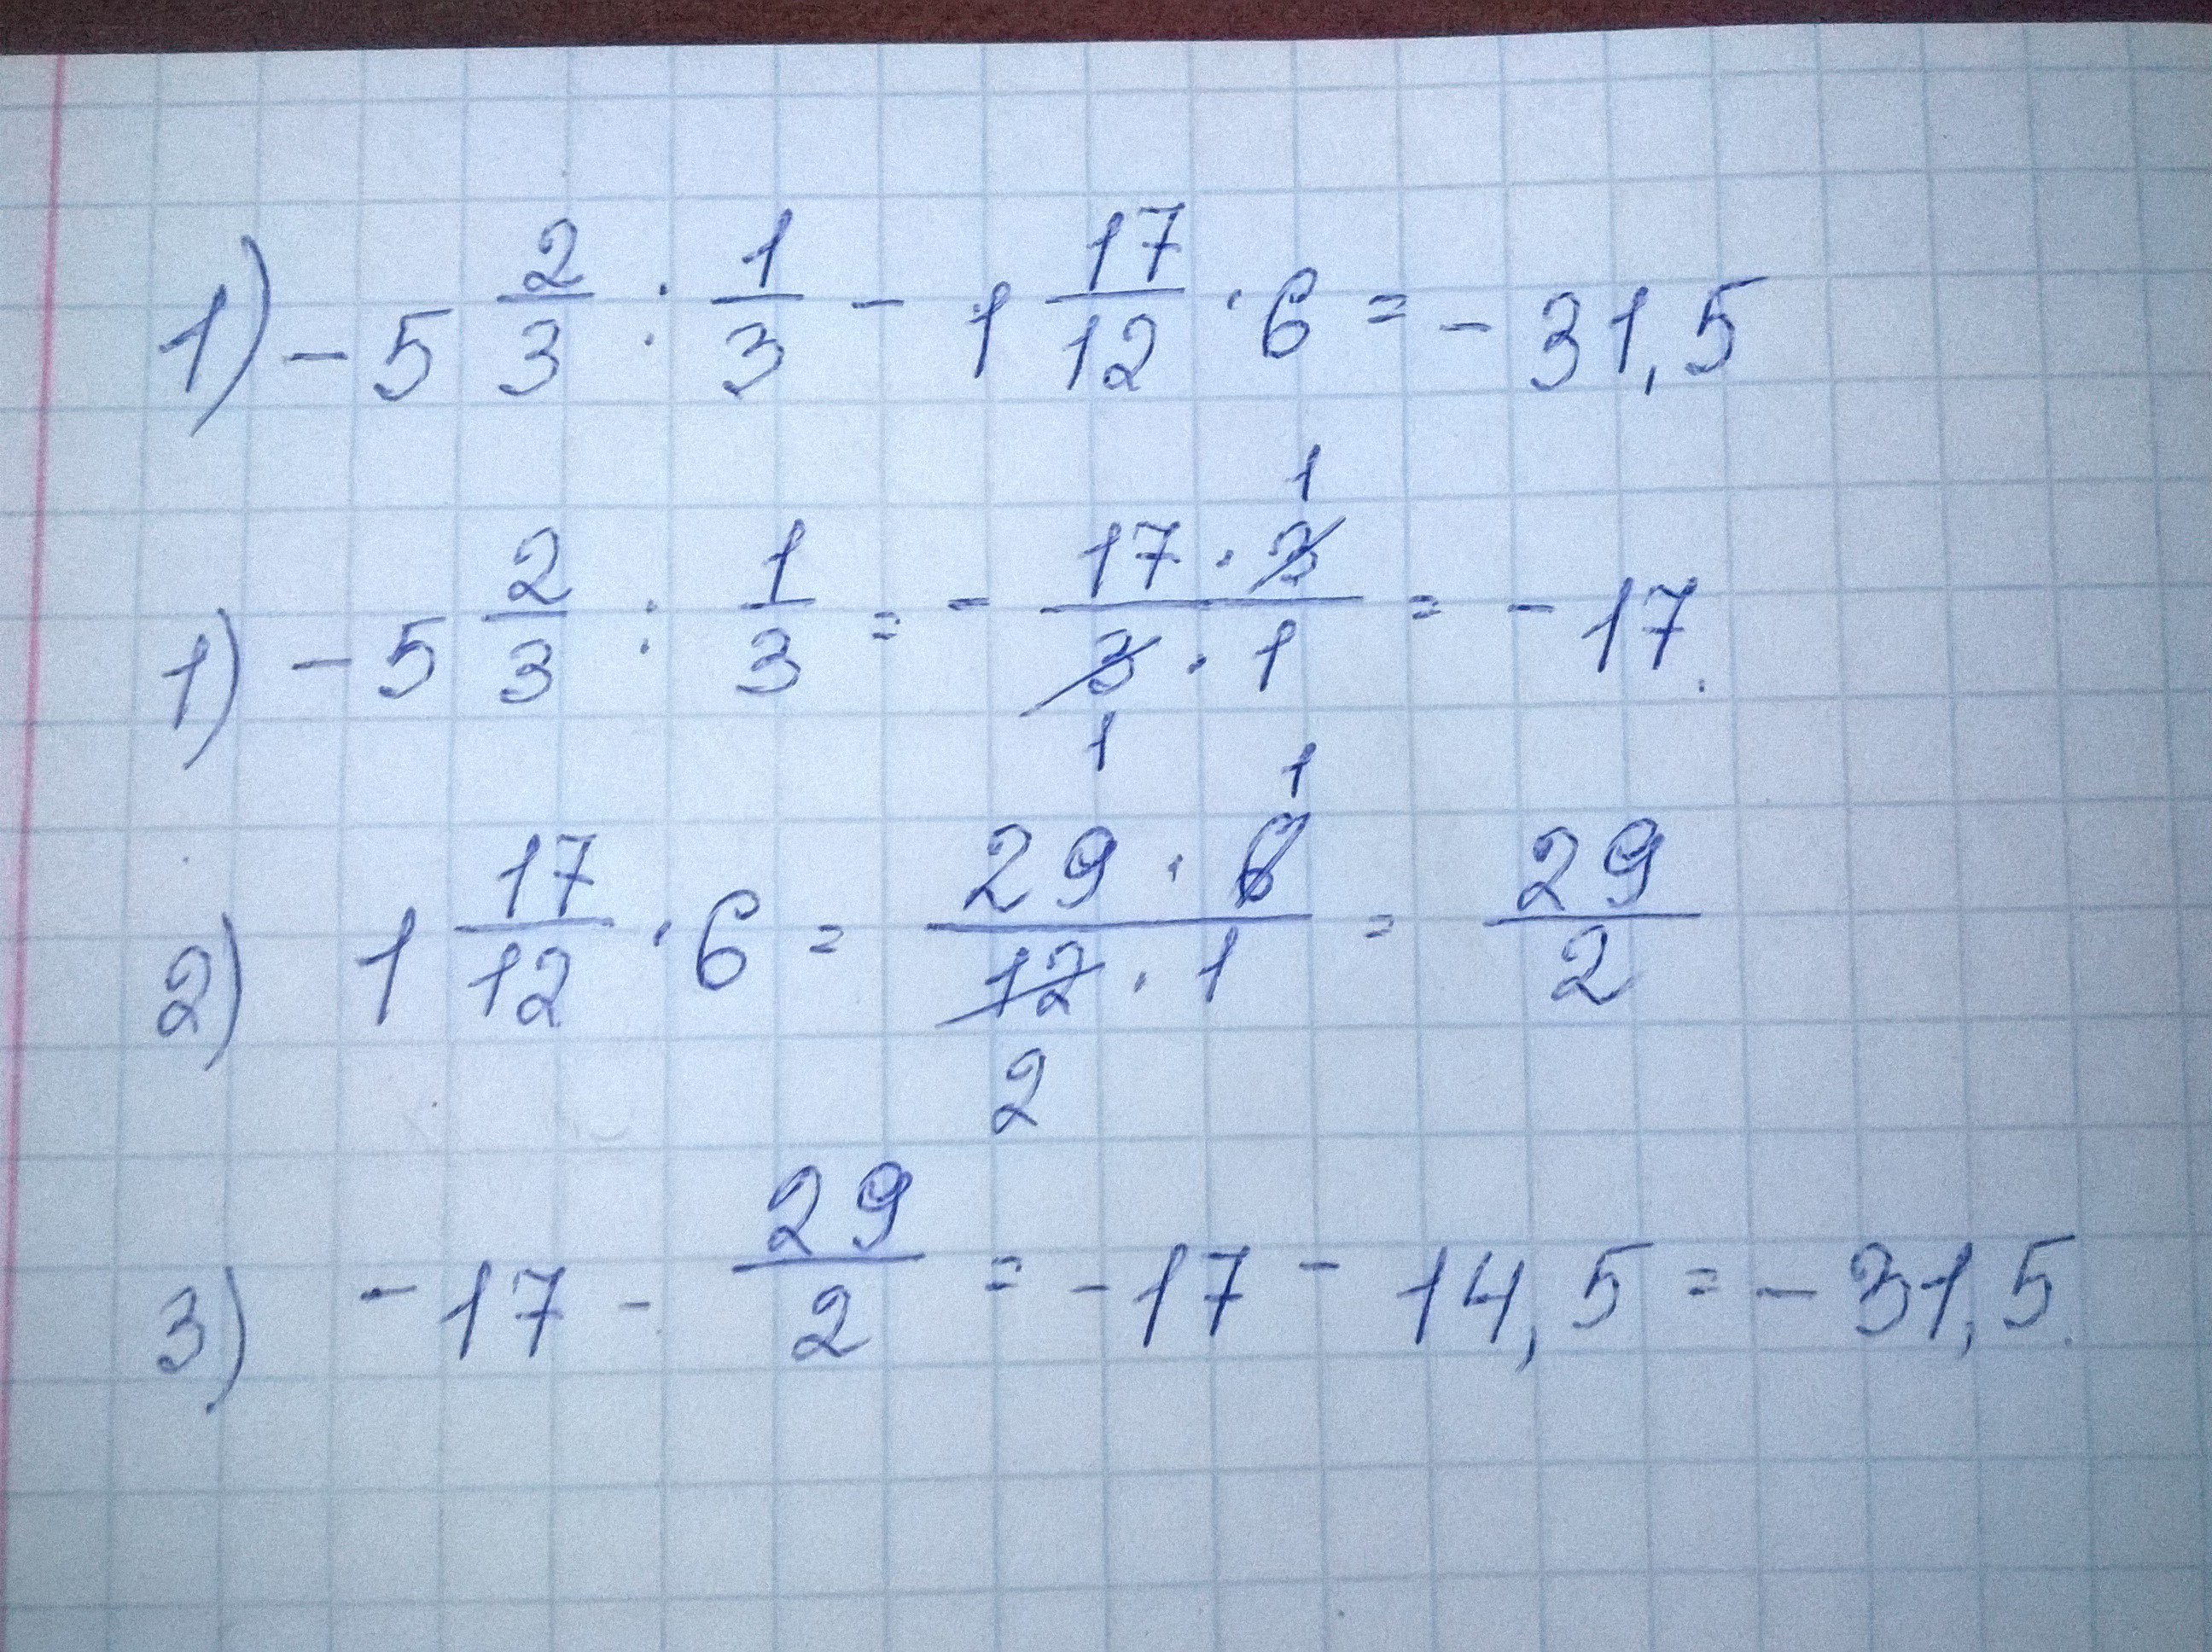 1) - 5 2/3 : 1/3 - 1 17/12 · 6 = - 31,5
1) - 5 2/3 : 1/3 = - (17 · 3̸ 1)/(3̸ 1 · 1) = - 17.
2) 1 17/12 · 6 = (29 · 6̸ 1)/(1̸2̸ 2 · 1) = 29/2
3) - 17 - 29/2 = - 17 - 14,5 = - 31,5.